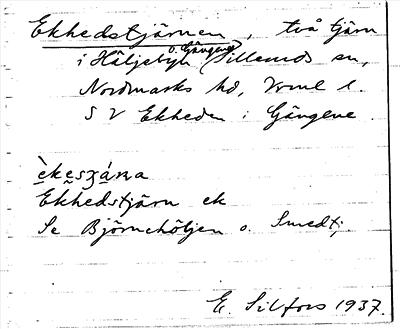 Ekhedstjärnen, två tjärn
i Häljebyh o. Gängene, Silleruds sn,
Nordmarks hd, Vrml l.
S V Ekheden i Gängene.
Ekhedstjärn ek
Se Björnehöljen o. Smedtj.
E. Silfors 1937.